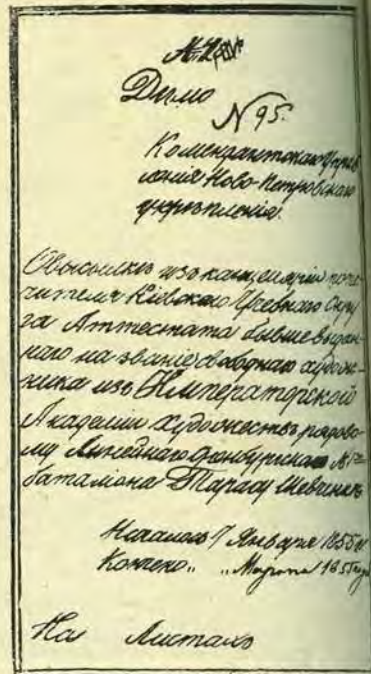 Дѣло
N 95.
Комендантскаго Управ
ленія Ново-Петровскаго
укрѣпленія.
О высылкѣ изъ канцеляріи попе-
чителя Кіевскаго Учебнаго Окру
га Аттестата бывше выдан-
наго на званіе свободнаго худож-
ника изъ Императорской
Академіи художествъ рядово-
му Линейнаго Оренбургскаго № 1го
баталіона Тарасу Шевченкѣ
Началось 7 Января 1855 г.
Кончено „ „ Марта 1855 года
На Листахъ